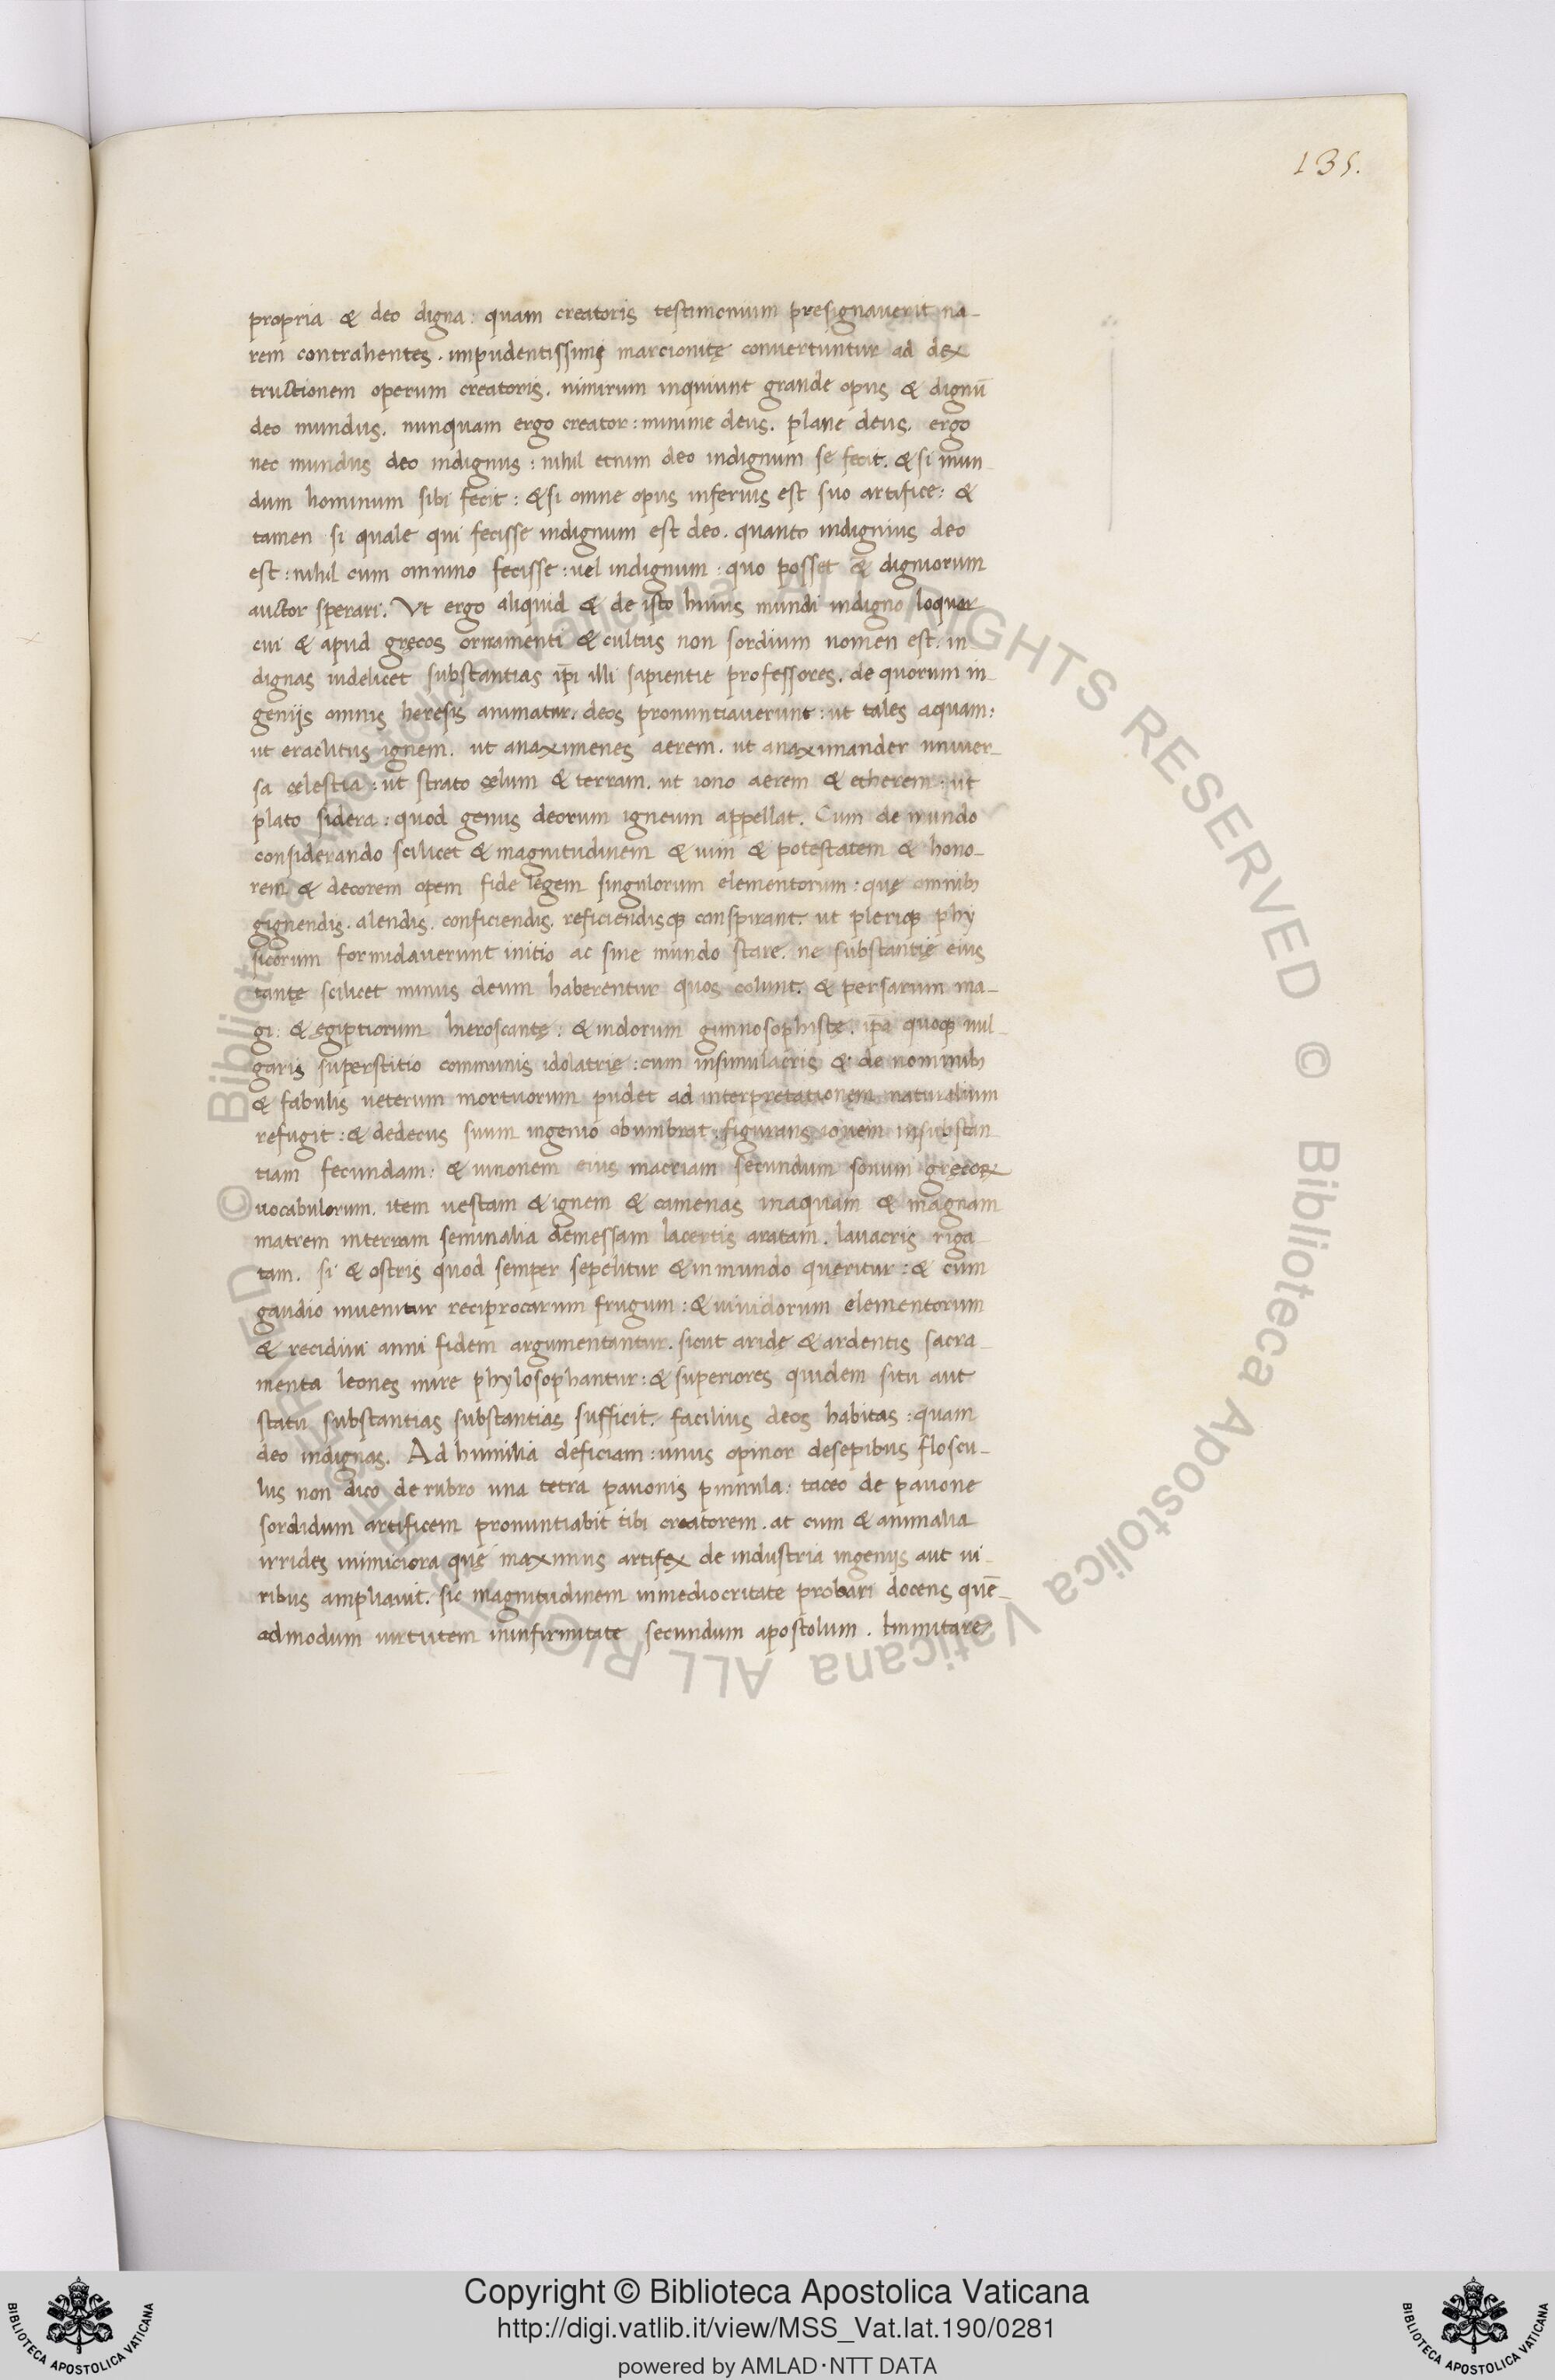 135.
propria & deo digna: quam creatoris testimonium presignauerit na-
rem contrahentes. impudentissimę marcionitę conuertuntur ad dex
tructionem operum creatoris. nimirum inquiunt grande opus & dignū
deo mundus. nunquam ergo creator: minime deus. plane deus. ergo
nec mundus deo indignus: nihil etnim deo indignum se fecit. & si mun-
dum hominum sibi fecit: & si omne opus inferius est suo artifice: &
tamen si quale qui fecisse indignum est deo. quanto indignius deo
est: nihil cum omnino fecisse: uel indignum: quo posset & digniorum
auctor sperari. Vt ergo aliquid & de isto huius mundi indigno loquor
cui & apud gręcos ornamenti & cultus non sordium nomen est. in
dignas uidelicet substantias ip̄i illi sapientie professores. de quorum in-
genijs omnis heresis animatur. deos pronuntiauerunt: ut tales aquam:
ut eraclitus ignem. ut anaximenes aerem. ut anaximander uniuer-
sa cęlestia: ut strato cęlum & terram. ut iono aerem & etherem: ut
plato sidera: quod genus deorum igneum appellat. Cum de mundo
considerando scilicet & magnitudinem & uim & potestatem & hono-
rem & decorem opem fide legem singulorum elementorum: quę omnibꝫ
gignendis. alendis. conficiendis. reficiendisqꝫ conspirant. ut pleriqꝫ phy
sicorum formidauerunt initio ac fine mundo stare. ne substantię eius
tantę scilicet minus deum haberentur quos colunt. & persarum ma-
gi: & egiptiorum hieroscantę: & indorum gimnosophistę. ip̄a quoqꝫ uul-
garis superstitio communis idolatrię: cum insimulacris & de nominibꝫ
& fabulis ueterum mortuorum pudet ad interpretationem naturalium
refugit: & dedecus suum ingenio obumbrat: figurans iouem insubstan
tiam fecundam: & iunonem eius macriam secundum sonum gręcoꝝ
uocabulorum. item uestam & ignem & camenas inaquam & magnam
matrem interram seminalia demessam lacertis aratam. lauacris riga-
tam. si & ostris quod semper sepelitur & in mundo queritur: & cum
gaudio inuenitur reciprocarum frugum: & uiuidorum elementorum
& recidiui anni fidem argumentantur. sicut aridę & ardentis sacra-
menta leones mire phylosophantur: & superiores quidem situ aut
statu substantias substantias sufficit. facilius deos habitas: quam
deo indignas. Ad humilia deficiam: unus opinor desepibus floscu-
lus non dico de rubro una tetra pauonis pinnula: taceo de pauone
sordidum artificem pronuntiabit tibi creatorem. at cum & animalia
irrides inimiciora quę maximus artifex de industria ingenijs aut ui-
ribus ampliauit. sic magnitudinem inmediocritate probari docens quē-
admodum uirtutem ininfirmitate secundum apostolum. Immitare
Copyright © Biblioteca Apostolica Vaticana
http://digi.vatlib.it/view/MSS_Vat.lat.190/0281
powered by AMLAD·NTT DATA